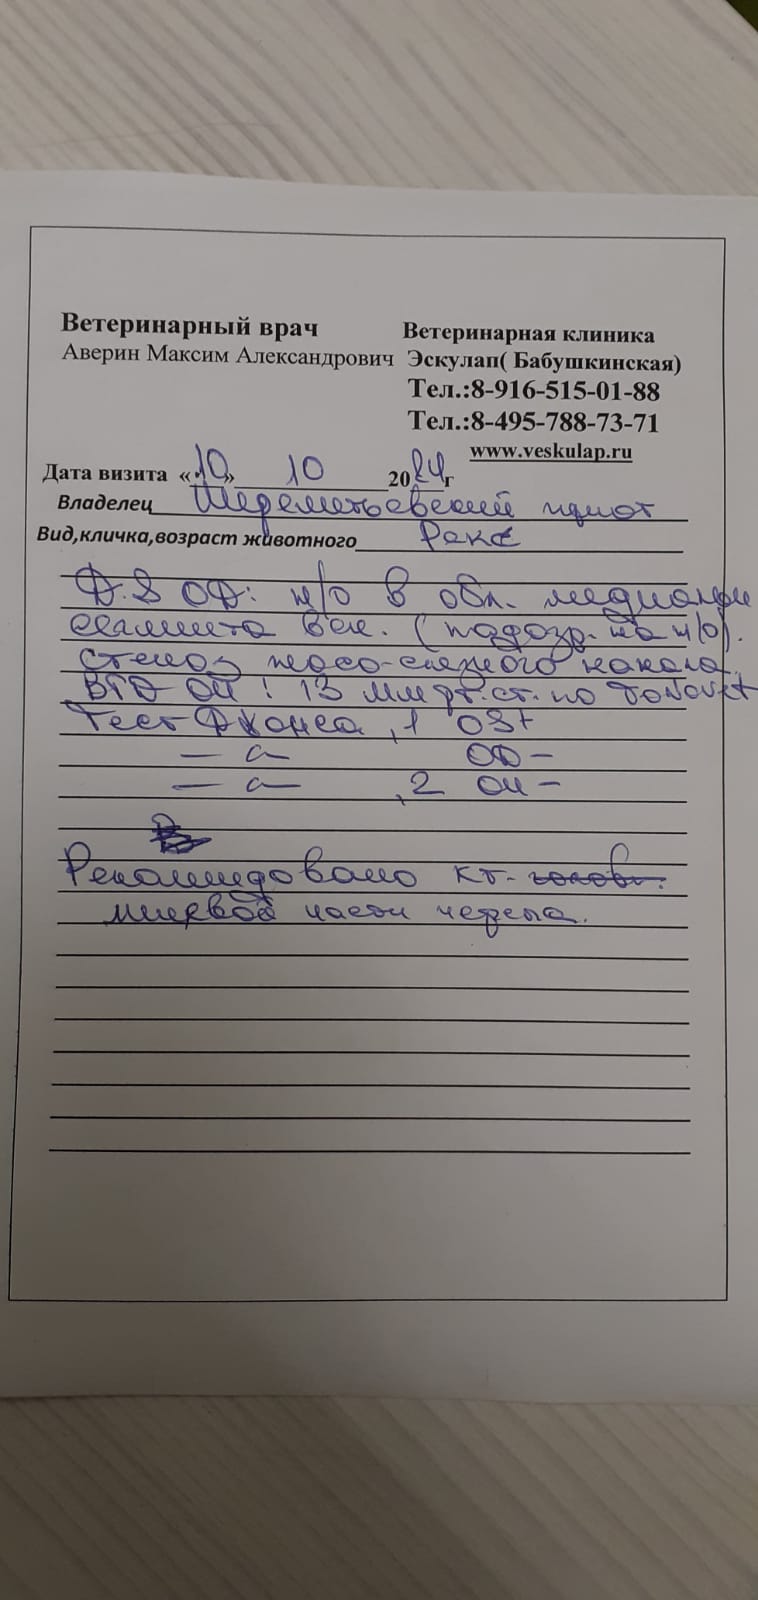 Ветеринарный врач
Аверин Максим Александрович
Ветеринарная клиника
Эскулап( Бабушкинская)
Тел.:8-916-515-01-88
Тел.:8-495-788-73-71
www.veskulap.ru
Дата визита «10» 10 2024г
Владелец Шереметьевский приют
Вид,кличка,возраст животного
Д.S OD: н/о в обл. медиальн
века. (подозр. на н/о).
Стеноз носо-слезного канала.
ВГД OU: 13 мм рт.ст. по TonoVet
Тест Джонса ,1 OS+
OD-
,2 OU-
Рекомендовано КТ-
лицевой части черепа.